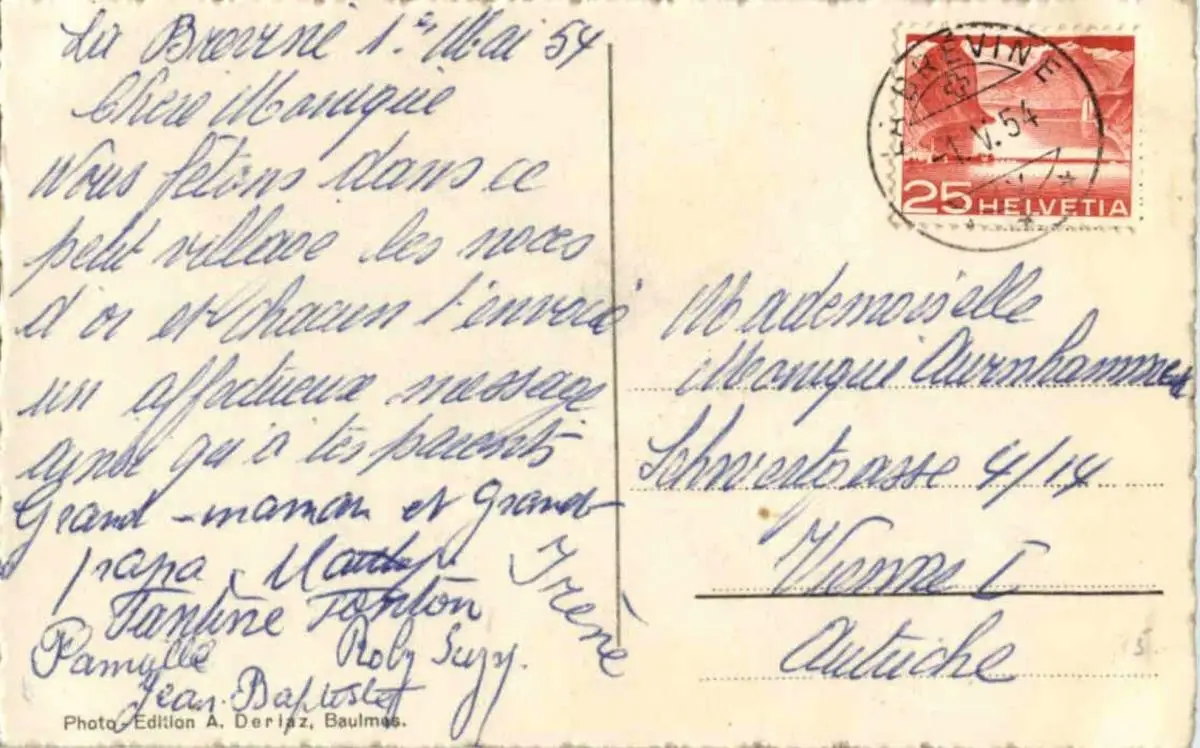 La Brévine 1er Mai 54
Chère Monique
Nous fêtons dans ce
petit village les noces
d'or et chacun t'envoie
un affectueux message
ainsi qu'à tes parents
Grand-maman et Grand-
papa,
Tantine Tonton
Roby Suzy.
Jean-Baptiste
Irène
Photo-Edition A. Deriaz, Baulmes.
LA BRÉVINE
1.V.54
25 HELVETIA
Mademoiselle
Monique Aurnhammer
Schwertgasse 4/14
Vienne I
Autriche